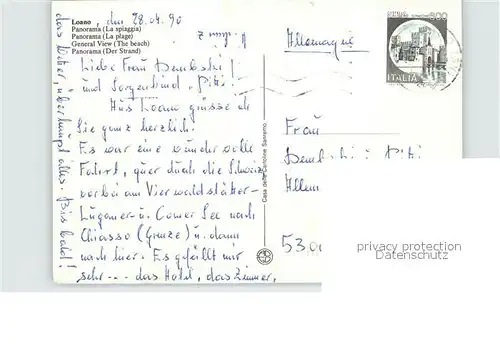 Loano, den 28.04.90
Panorama (La spiaggia)
Panorama (La plage)
General View (The beach)
Panorama (Der Strand)
Liebe Frau Dembski!
und Sorgenkind "Piti"!
Aus Loano grüsse ich
Sie ganz herzlich!
Es war eine wundervolle
Fahrt, quer durch die Schweiz
vorbei am Vierwaldstätter-
Luganer- u. Comer See nach
Chiasso (Grenze) u. dann
nach hier. Es gefällt mir
sehr --- das Hotel, das Zimmer,
das Wetter, überhaupt alles. Bis bald!
Casa della Cartolina Sanremo
Allemagne
800
ITALIA
Frau
Piti
Allem
5300
privacy protection
Datenschutz